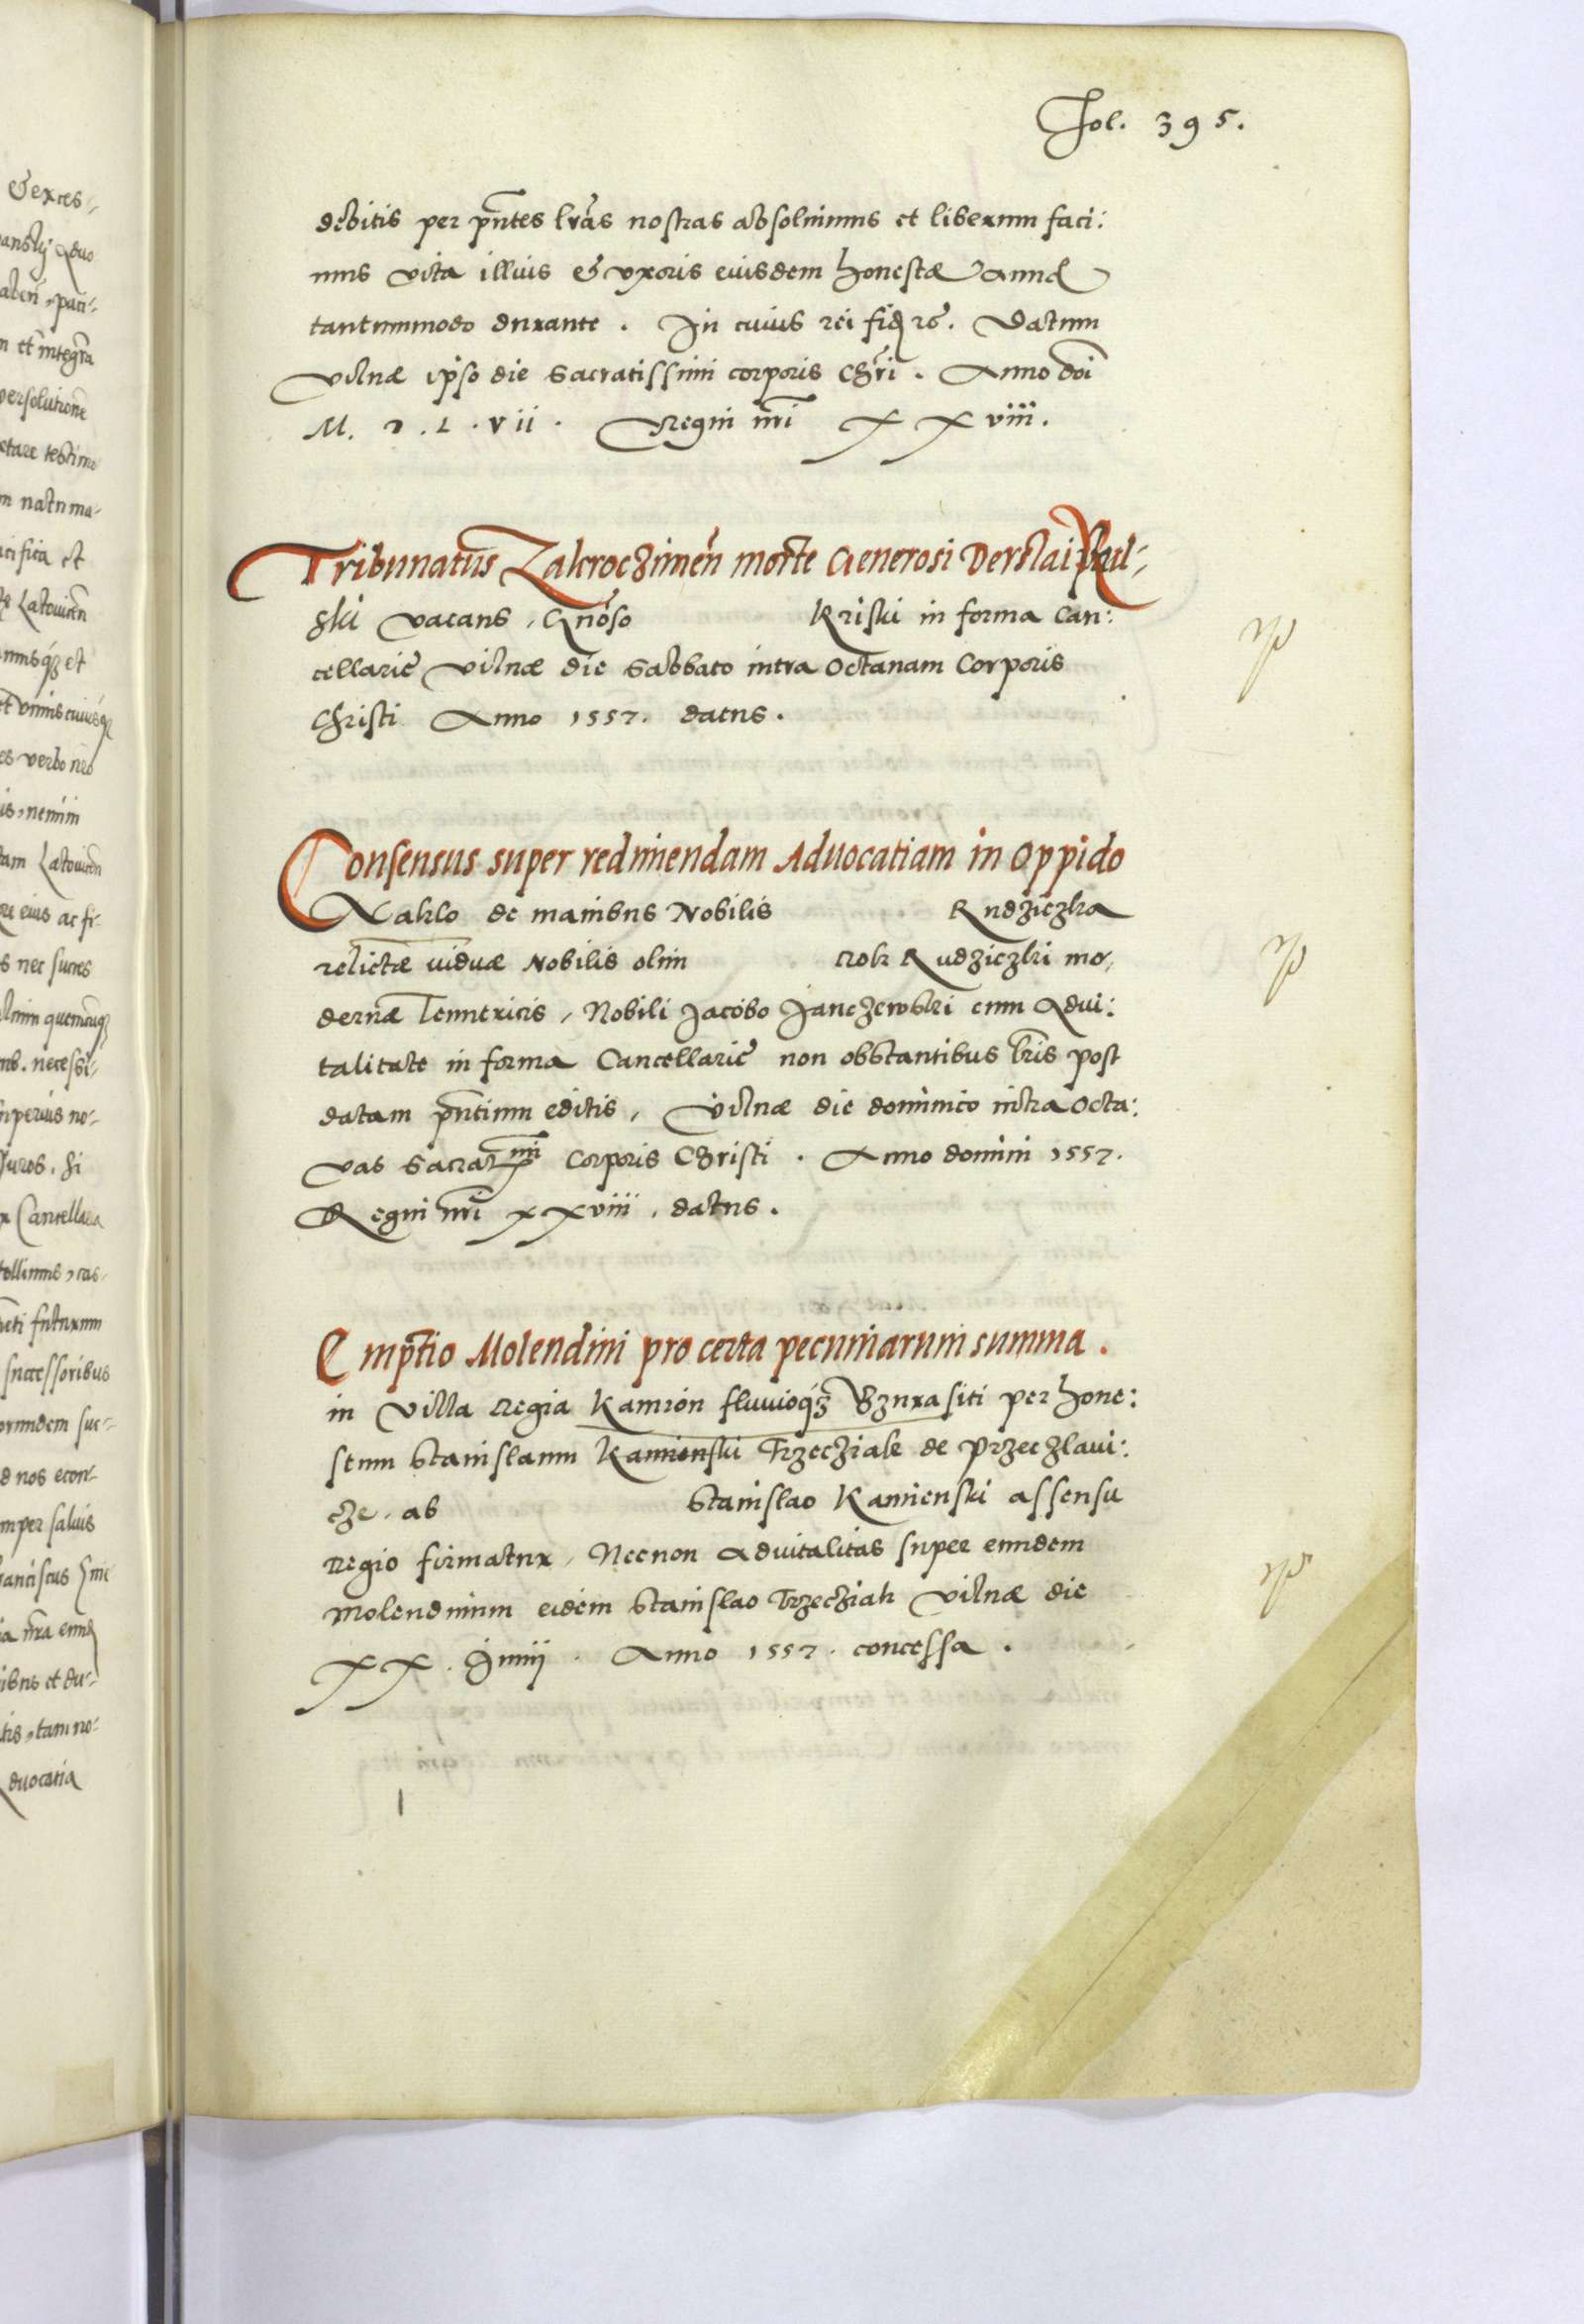 Fol. 395.
debitis per pntes lras nostras absoluimus et liberum faci:
mus vita illius & vxoris eiusdem honestæ Annæ
tantummodo durante. In cuius rei fidem rc. Datum
Vilnæ ipso die Sacratissimi corporis Chri. Anno doi
M. D. L. vii. Regni nri XXviii.
Tribunatus Zakroczimen morte Generosi Derslai
ski vacans, Gnoso Kriski in forma Can:
cellariæ Vilnæ die Sabbato intra Octauam Corporis
Christi Anno 1557. datus.
Consensus super redimendam Aduocatiam in Oppido
Naklo de manibus Nobilis Rudziczka
relictæ viduæ Nobilis olim Rok Rudziczki mo,
dernæ Tenutricis, Nobili Jacobo Janczewski cum Adui:
talitate in forma Cancellariæ non obstantibus lris post
datam pntium editis, Vilnæ die dominico intra Octa:
vas Sacratmi Corporis Christi. Anno domini 1557.
Regni nri xxviii, datus.
Emptio Molendini pro certa pecuniarum summa.
in Villa Regia Kamion fluuioqz Bzura siti per hone:
stum Stanislaum Kamienski Trzecziak de Przeczlaui:
cze. ab Stanislao Kamienski assensu
Regio firmatur, Necnon aduitalitas super eundem
Molendinum eidem Stanislao Trzecziak Vilnæ die
XX. Junij. Anno 1557. concessa.
& exces-
et integra
persolutione
natu ma-
et
Latouicen
et
verbo nro
nemini
tam Latouicen
eius ac fi-
nec succes
necessi-
imperius no-
si
Cancellaria
futurum
successoribus
suc-
d nos econ-
semper saluis
et du-
tam no-
Aduocatia